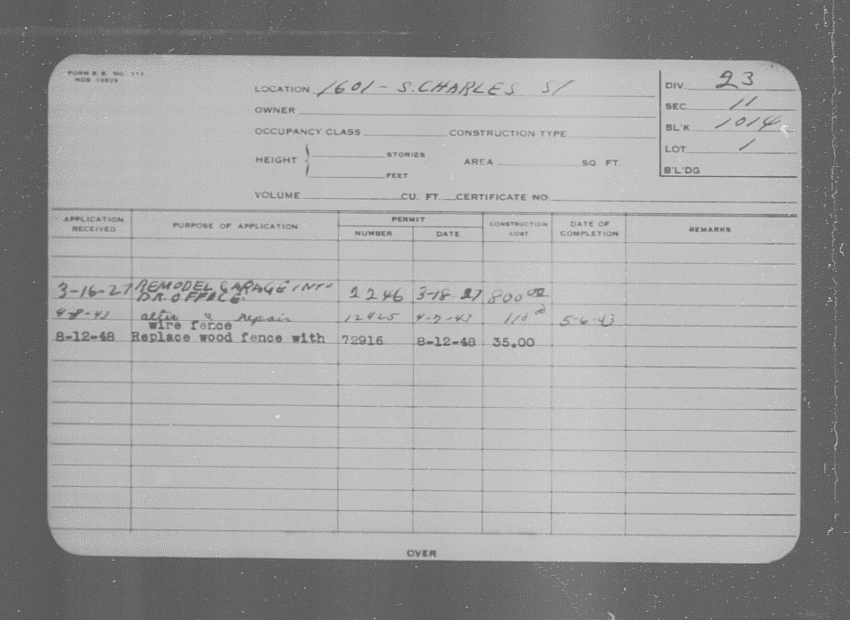 FORM B. B. NO. 113
LOCATION 1601 - S. CHARLES ST
OWNER
OCCUPANCY CLASS CONSTRUCTION TYPE
HEIGHT STORIES AREA SQ. FT
FEET
VOLUME CU. FT. CERTIFICATE NO.
DIV. 23
SEC 11
BL'K 1014
LOT 1
B'L'DG
APPLICATION RECEIVED PURPOSE OF APPLICATION PERMIT NUMBER DATE CONSTRUCTION COST DATE OF COMPLETION REMARKS
3-16-27 REMODEL GARAGE INTO 2246 3-18-27 800 00
DR. OFFICE.
4-8-43 alter & repair 12425 4-7-43 110 00 5-6-43
wire fence
8-12-48 Replace wood fence with 72916 8-12-48 35.00
OVER